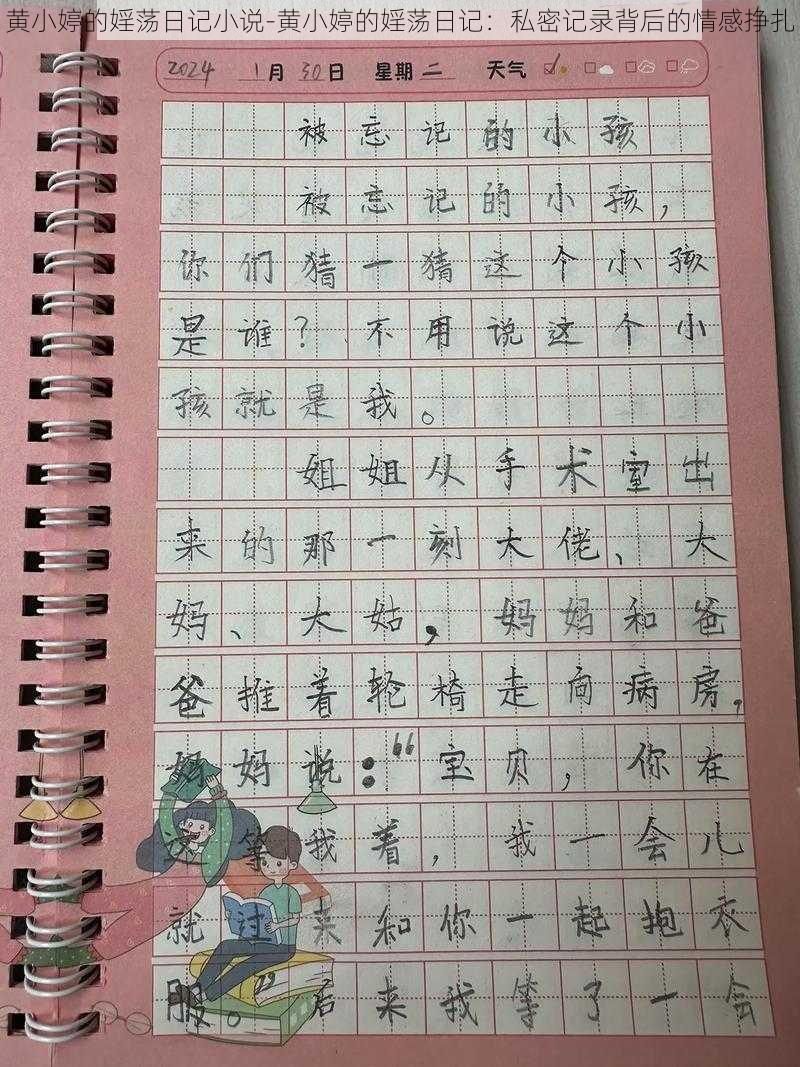 黄小婷的婬荡日记小说-黄小婷的婬荡日记：私密记录背后的情感挣扎
2024 1月30日 星期二 天气
被忘记的小孩
被忘记的小孩，
你们猜一猜这个小孩
是谁？不用说这个小
孩就是我。
姐姐从手术室出
来的那一刻大佬、大
妈、大姑，妈妈和爸
爸推着轮椅走向病房，
妈妈说：“宝贝，你在
这等我着，我一会儿
就过来和你一起抱衣
服。”后来我等了一会